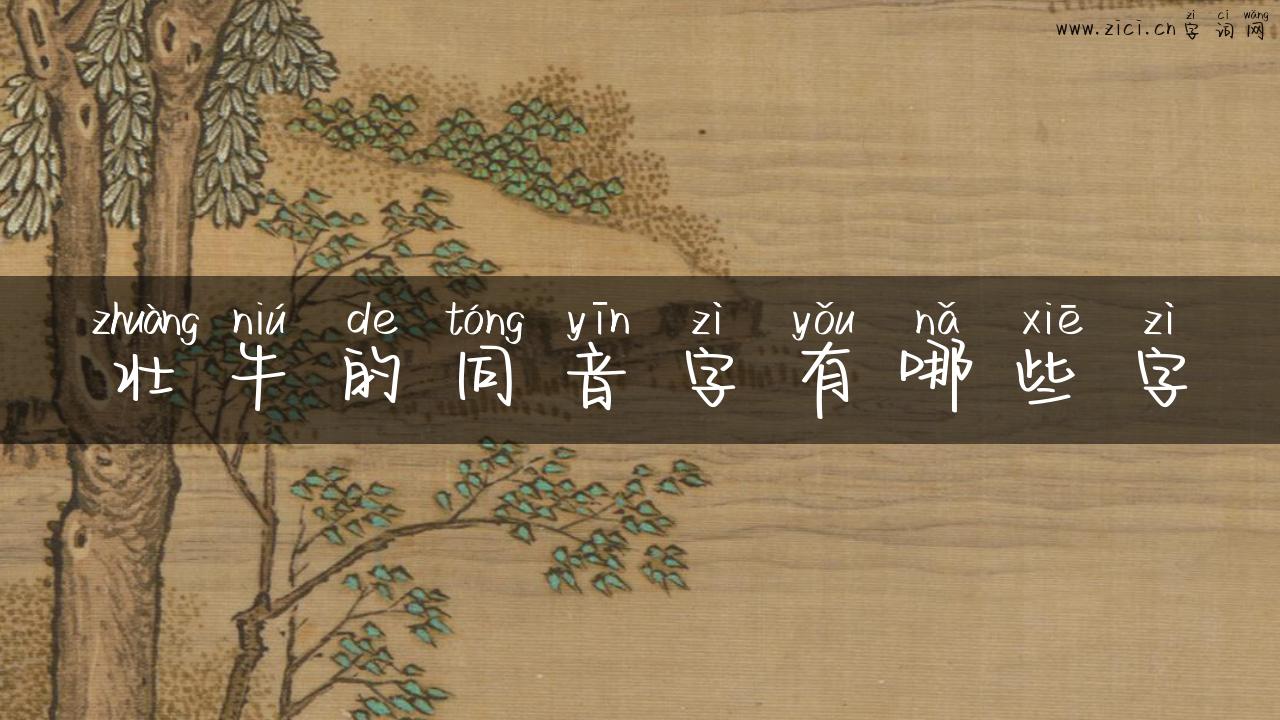 zì cí wǎng
www.zici.cn 字词网
zhuàng niú de tóng yīn zì yǒu nǎ xiē zì
壮牛的同音字有哪些字